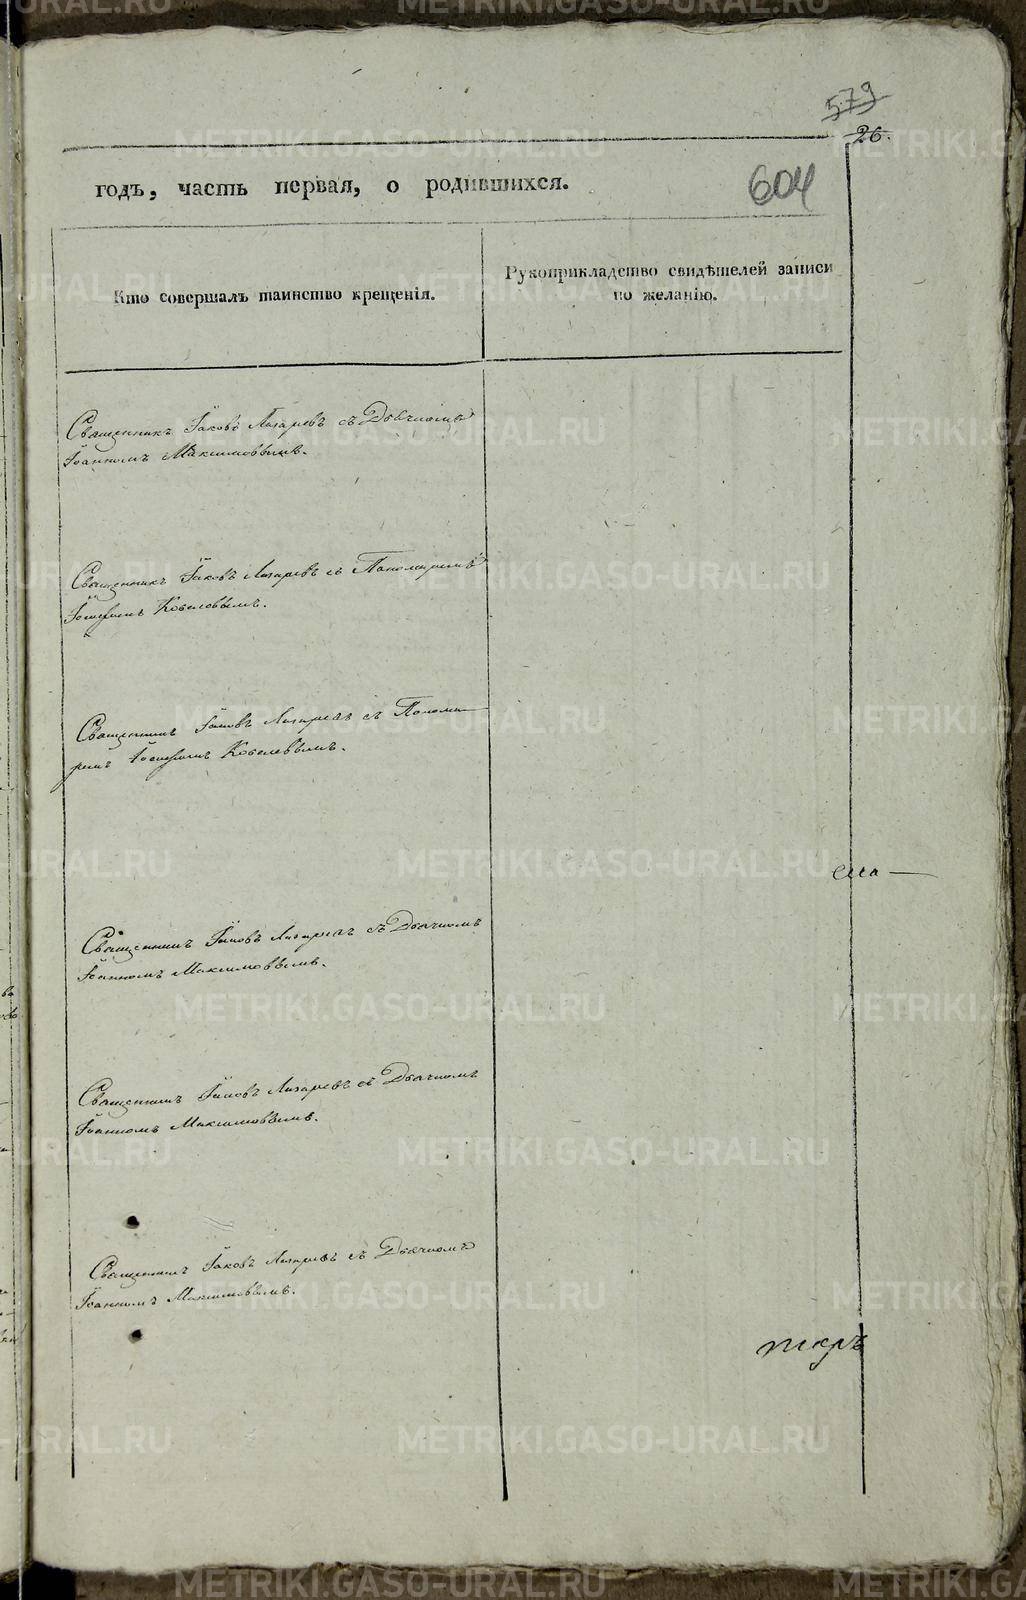 579
26.
604
годъ, часть первая, о родившихся.
Кто совершалъ таинство крещенія.
Рукоприкладство свидѣтелей записи
по желанію.
Священникъ Іаковъ Лазаревъ съ Дьячкомъ
Іоанномъ Максимовымъ.
Священникъ Іаковъ Лазаревъ съ Пономаремъ
Іосифомъ Кобелевымъ.
Священникъ Іаковъ Лазаревъ съ Понома-
ремъ Іосифомъ Кобелевымъ.
Священникъ Іаковъ Лазаревъ съ Дьячкомъ
Іоанномъ Максимовымъ.
Священникъ Іаковъ Лазаревъ съ Дьячкомъ
Іоанномъ Максимовымъ.
Священникъ Іаковъ Лазаревъ съ Дьячкомъ
Іоанномъ Максимовымъ.
METRIKI.GASO-URAL.RU